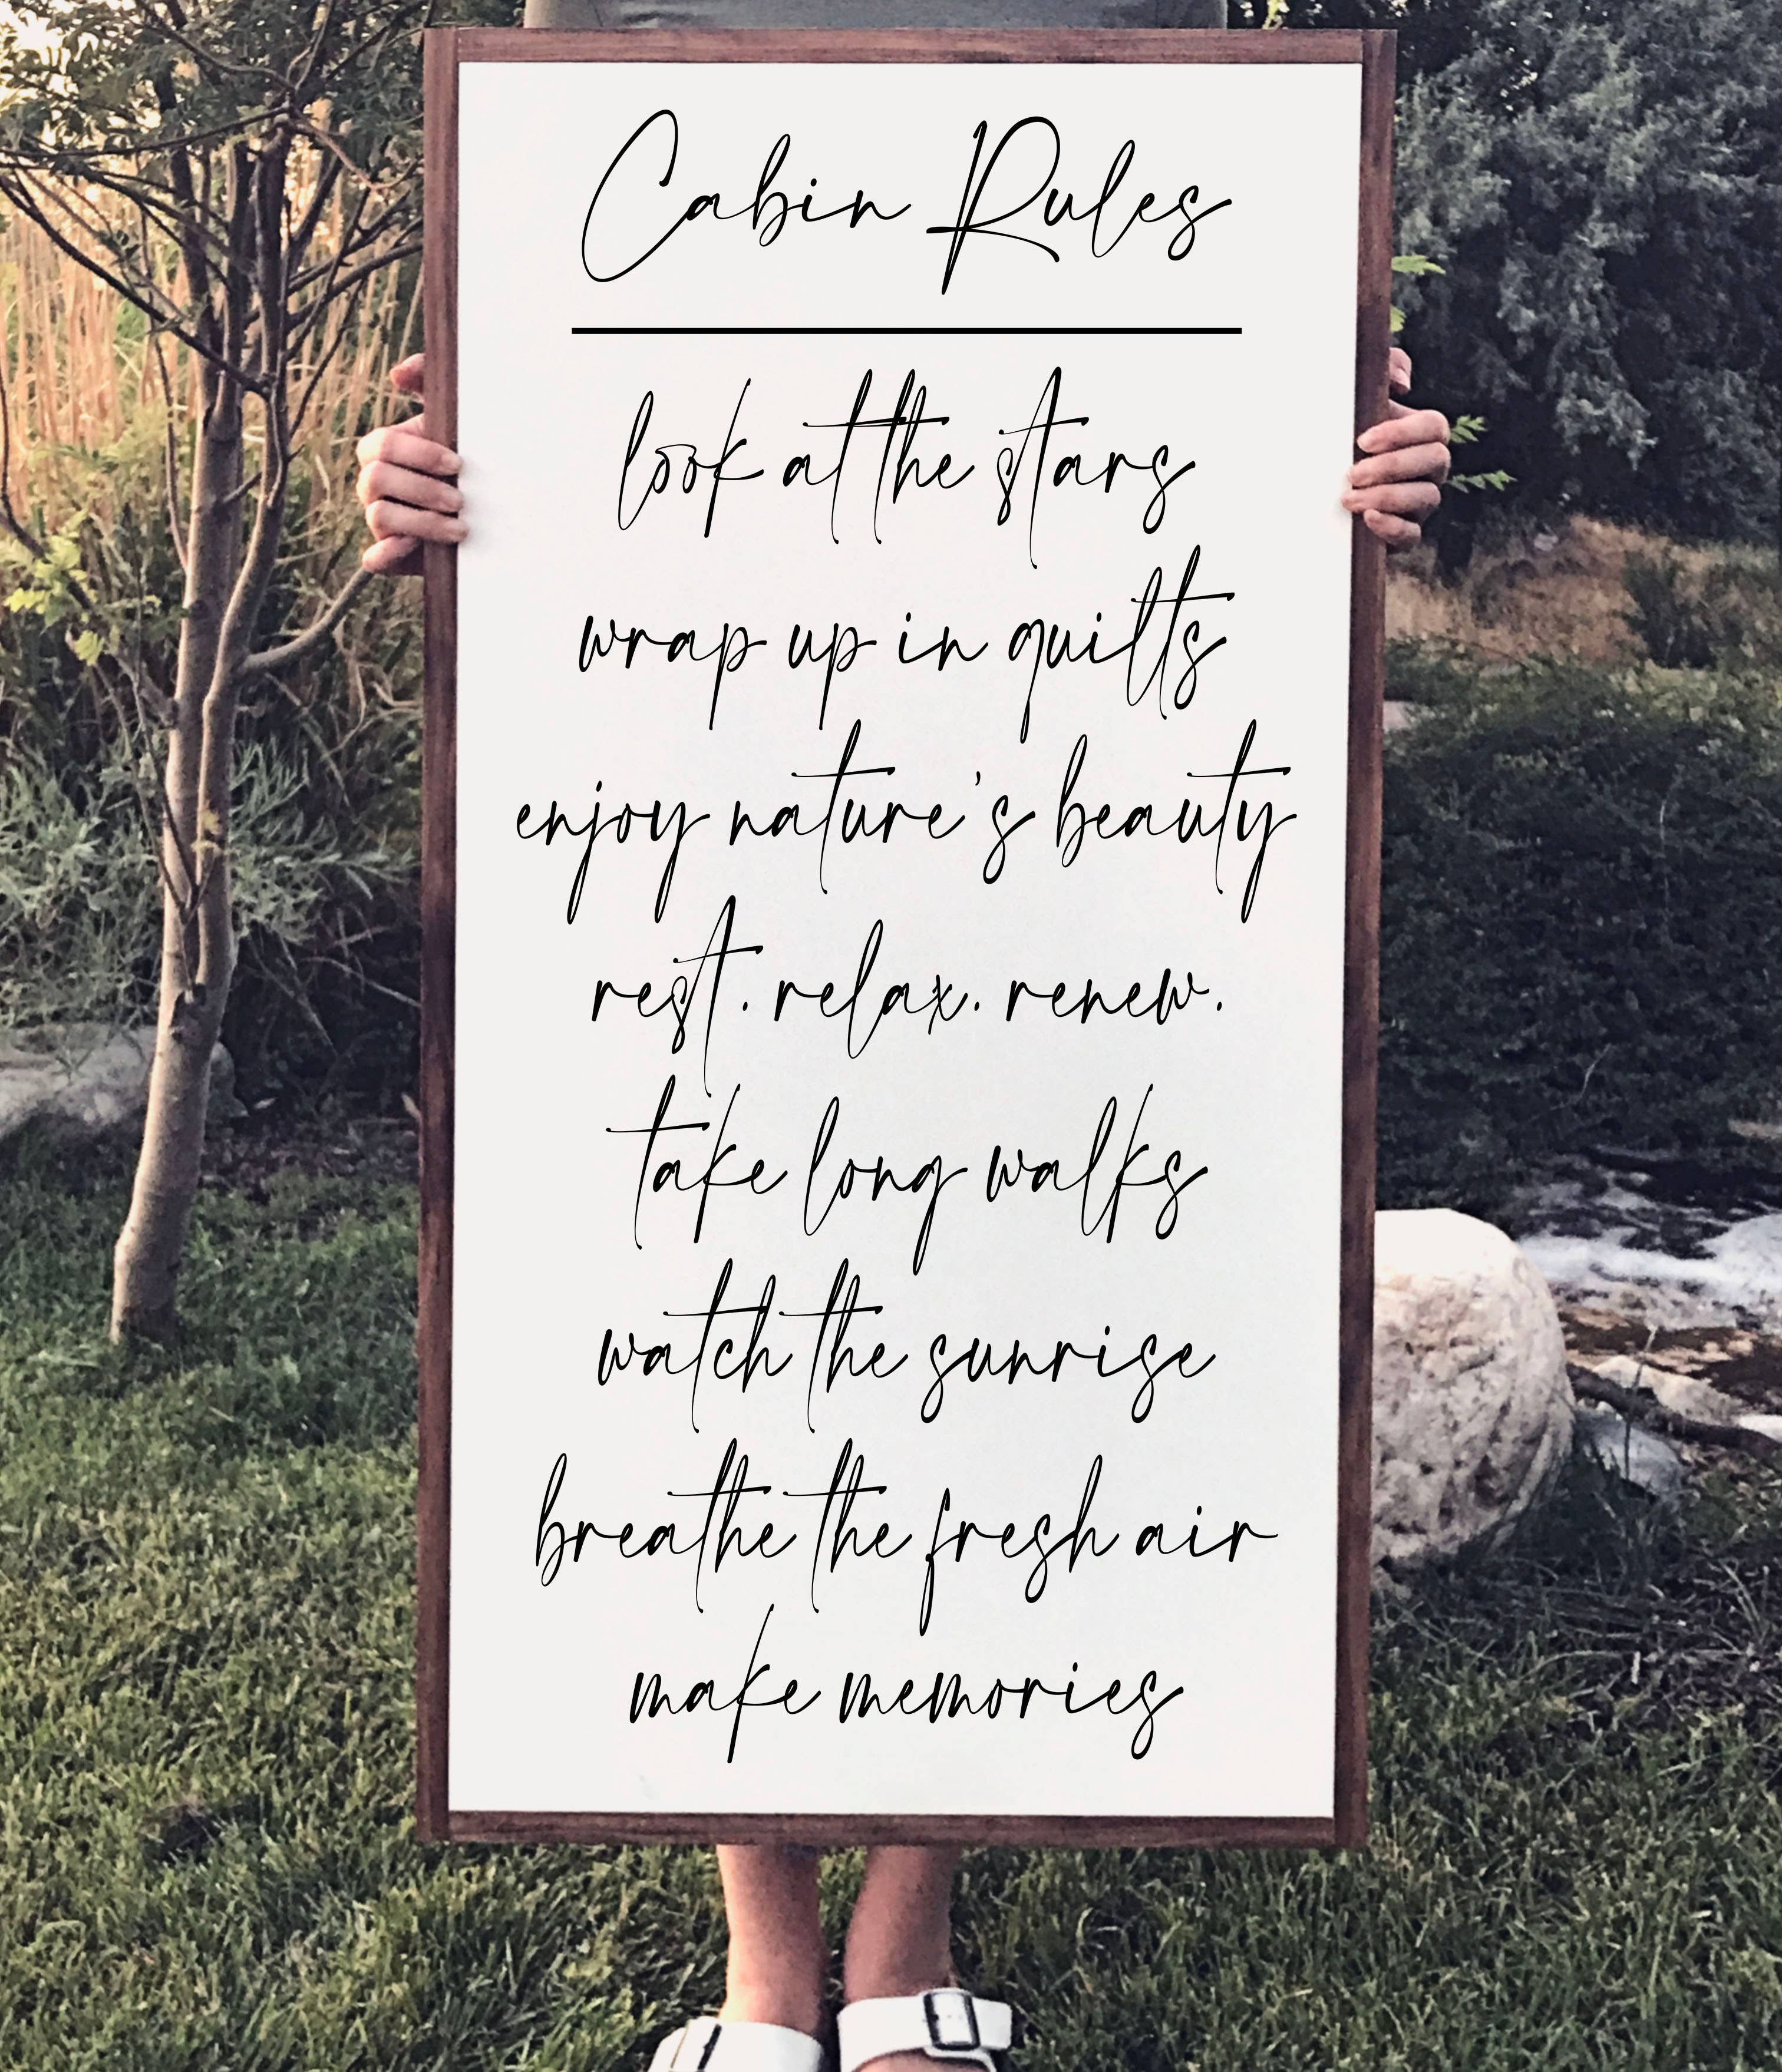 Cabin Rules
look at the stars
wrap up in quilts
enjoy nature's beauty
rest. relax. renew.
take long walks
watch the sunrise
breathe the fresh air
make memories